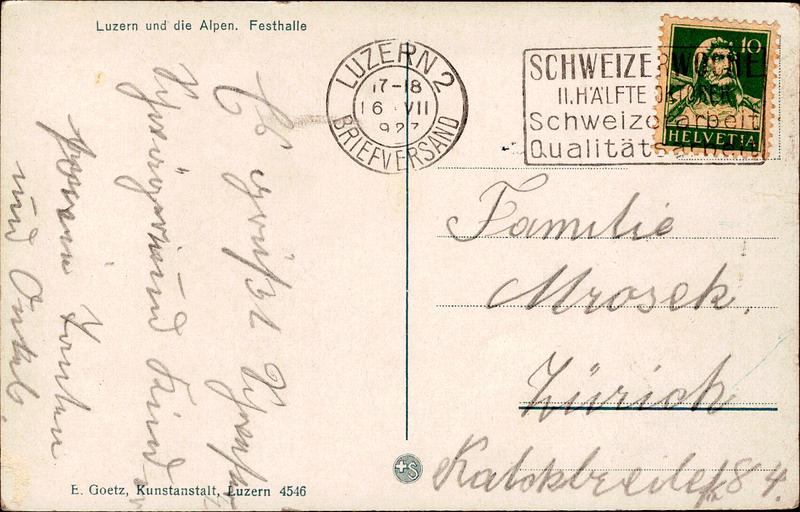 Luzern und die Alpen. Festhalle
LUZERN 2
17-18
16 VII
927
BRIEFVERSAND
SCHWEIZERWOCHE
II. HÄLFTE OKTOBER
Schweizerarbeit
Qualitätsarbeit
10
HELVETIA
Es grüßt
und
Tanten
und Onkel.
Familie
Mrosek.
Zürich
84.
+S
E. Goetz, Kunstanstalt, Luzern 4546